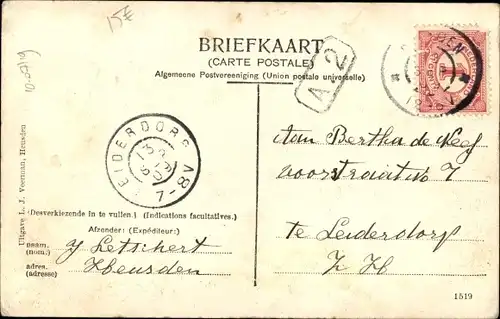 15 £
BRIEFKAART
(CARTE POSTALE)
Algemeene Postvereeniging (Union postale universelle)
A 2
LEIDERDORP
7-8V
Uitgave L. J. Veerman, Heusden
Aan Bertha de Neef
voorstraat
te Leiderdorp
Z H
(Desverkiezende in te vullen.) (Indications facultatives.)
Afzender: (Expéditeur:)
naam.
(nom.)
adres.
(adresse)
Heusden
1519